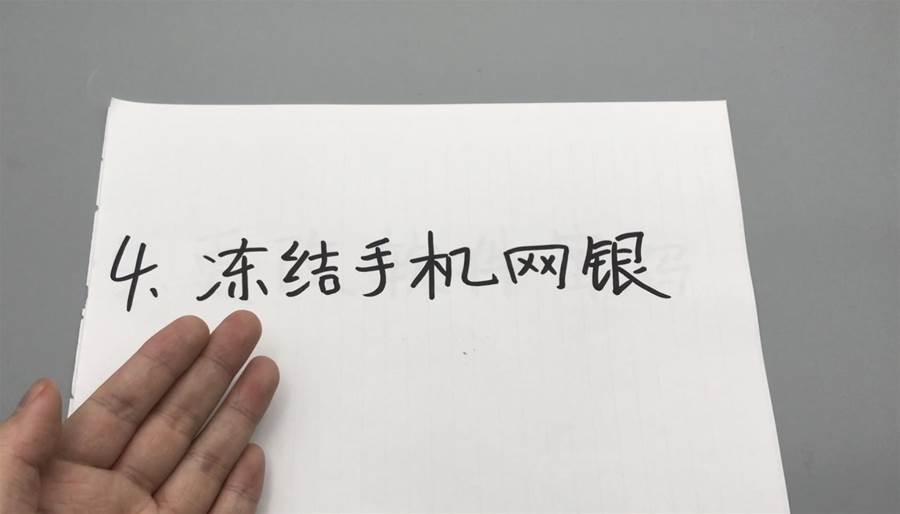 4、冻结手机网银